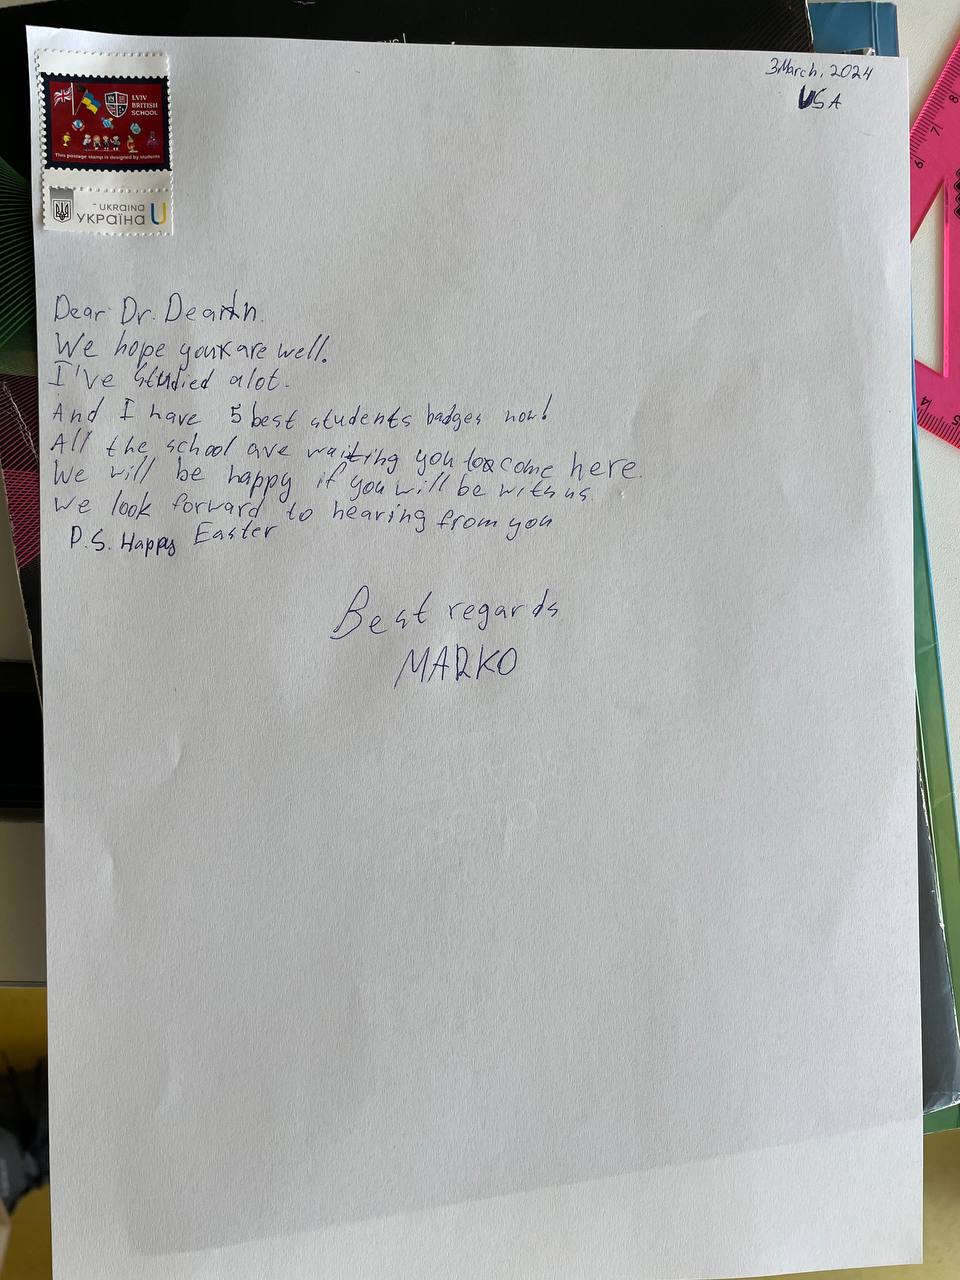 3 March, 2024
USA
LVIV
BRITISH
SCHOOL
This postage stamp is designed by students
UKRAINA
УКРАЇНА
Dear Dr.
We hope you are well.
I've studied alot.
And I have 5 best students badges now!
All the school are waiting you to come here.
We will be happy if you will be with us
We look forward to hearing from you
P.S. Happy Easter
Best regards
MARKO
7
8
14